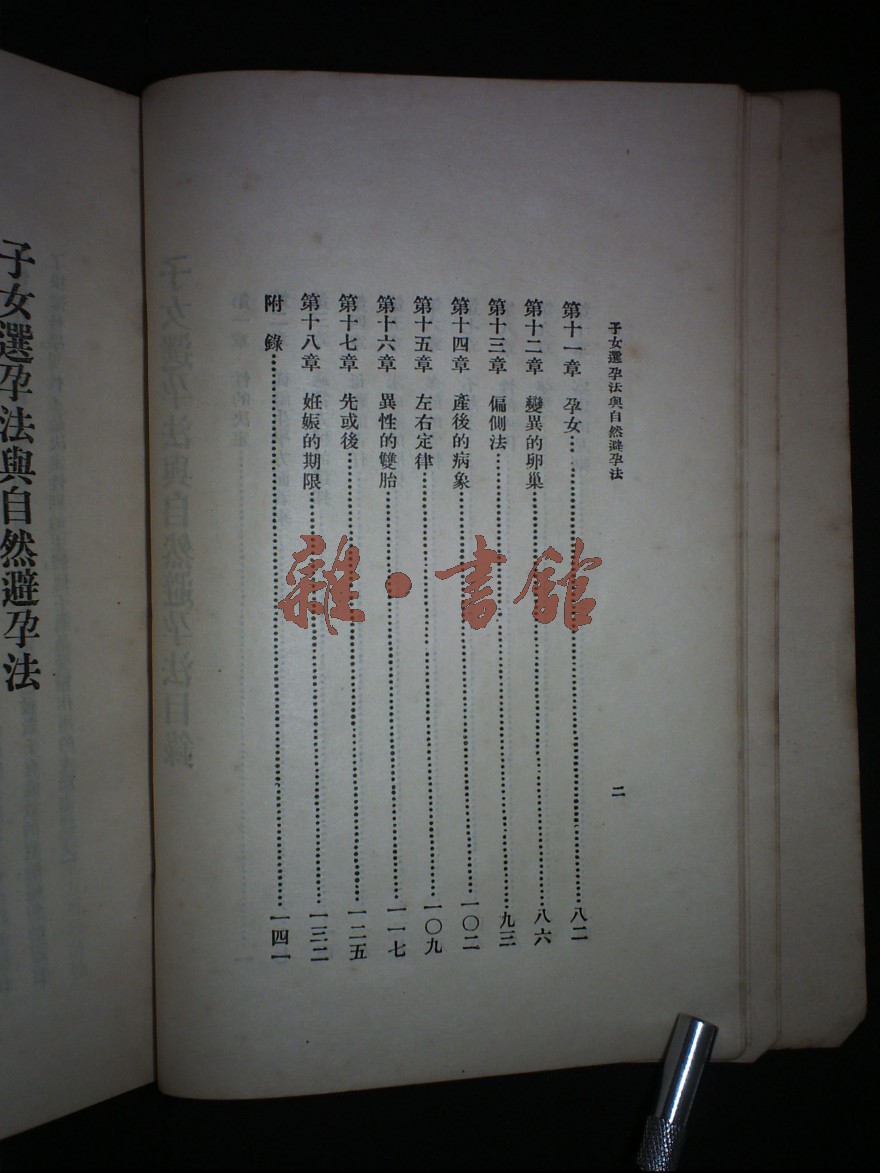 子女選孕法與自然避孕法
二
第十一章 孕女……八二
第十二章 變異的卵巢……八六
第十三章 偏側法……九三
第十四章 產後的病象……一〇二
第十五章 左右定律……一〇九
第十六章 異性的雙胎……一一七
第十七章 先或後……一二五
第十八章 妊娠的期限……一三二
附錄……一四一
雜·書館
子女選孕法與自然避孕法